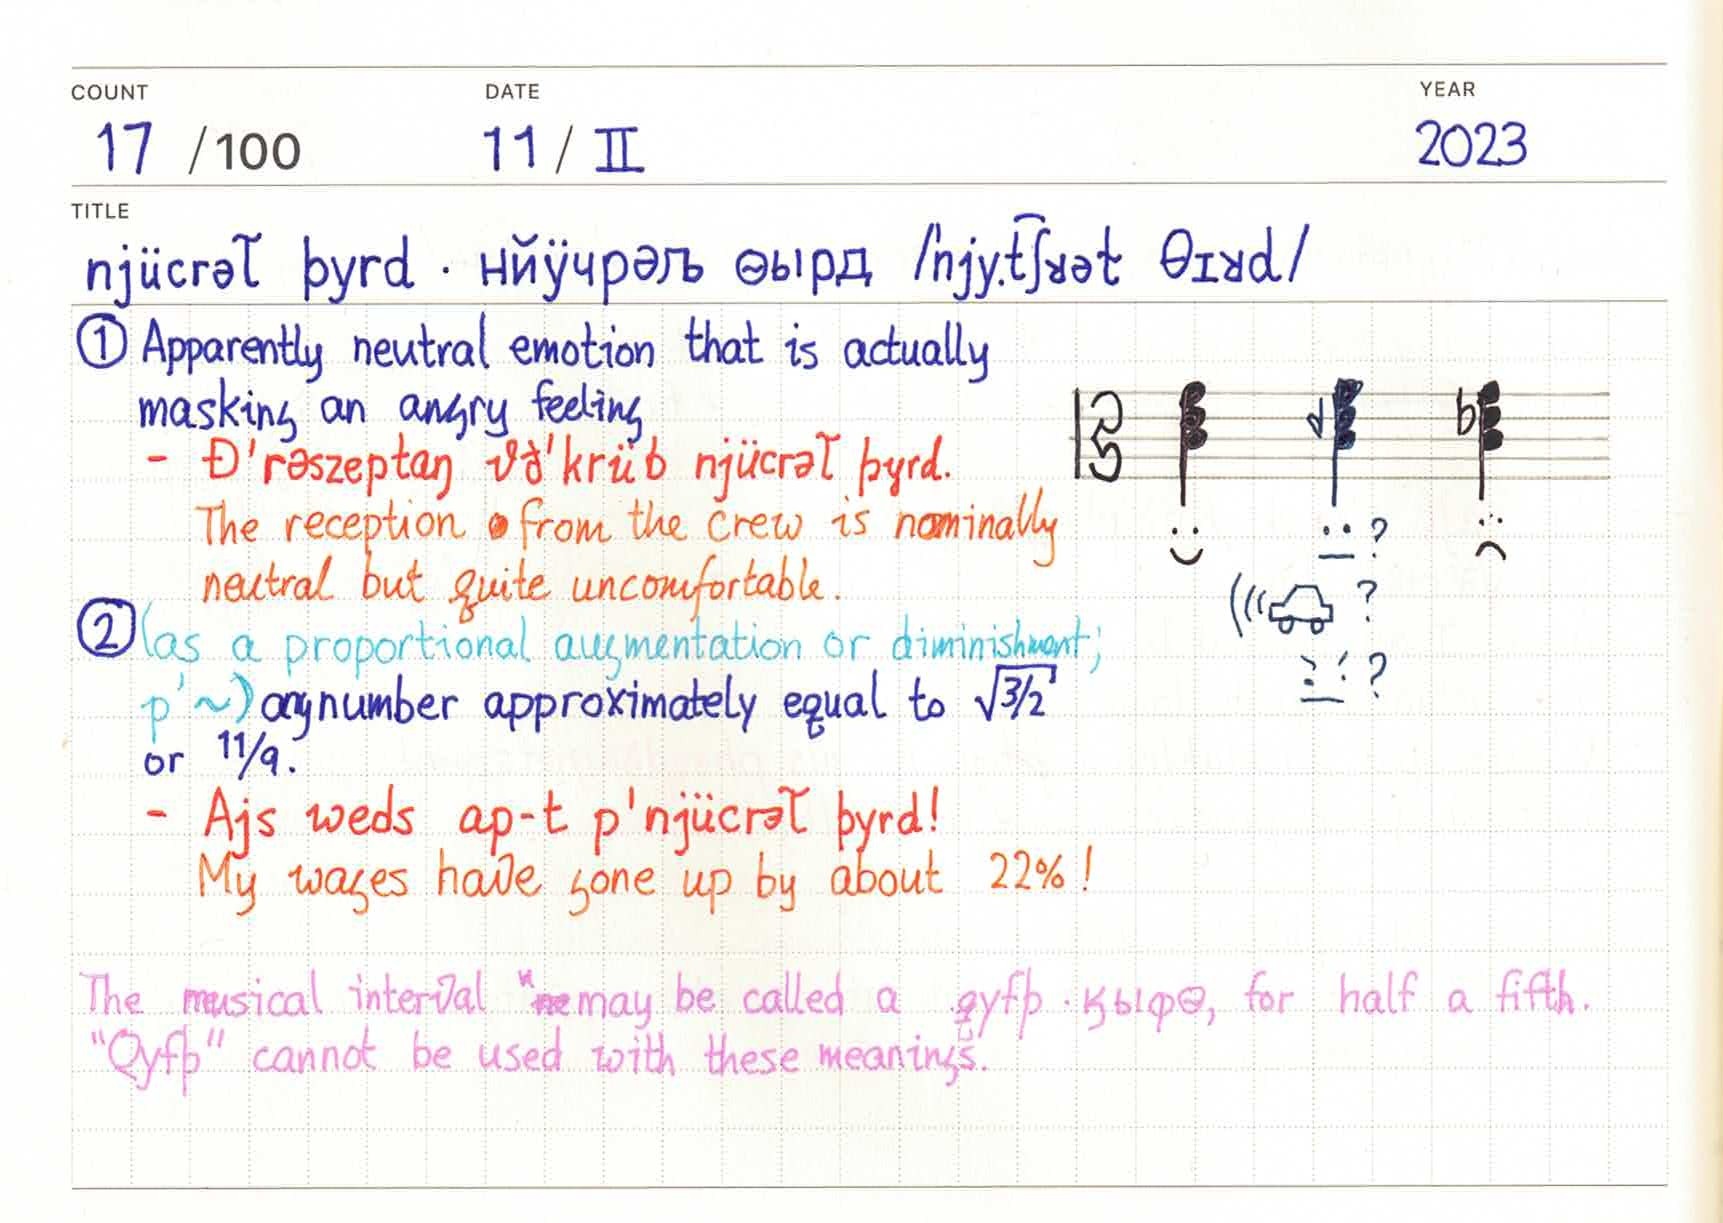 COUNT DATE YEAR
17 /100 11 / II 2023
TITLE
njücrəꞇ̃ þyrd · нйӱчрәԉъ ѳырд /ˈnjy.t͡ʃʁət θɪʁd/
① Apparently neutral emotion that is actually
masking an angry feeling
- Ð'rəszeptaŋ ꝟð'krüb njücrəꞇ̃ þyrd.
The reception from the crew is nominally
neutral but quite uncomfortable.
② (as a proportional augmentation or diminishment;
p'~) any number approximately equal to √3/2
or 11/9.
- Ajs weds ap-t p'njücrəꞇ̃ þyrd!
My wages have gone up by about 22%!
b
? 
?
?
The musical interval may be called a qyfþ · ӄыфѳ, for half a fifth.
"Qyfþ" cannot be used with these meanings.